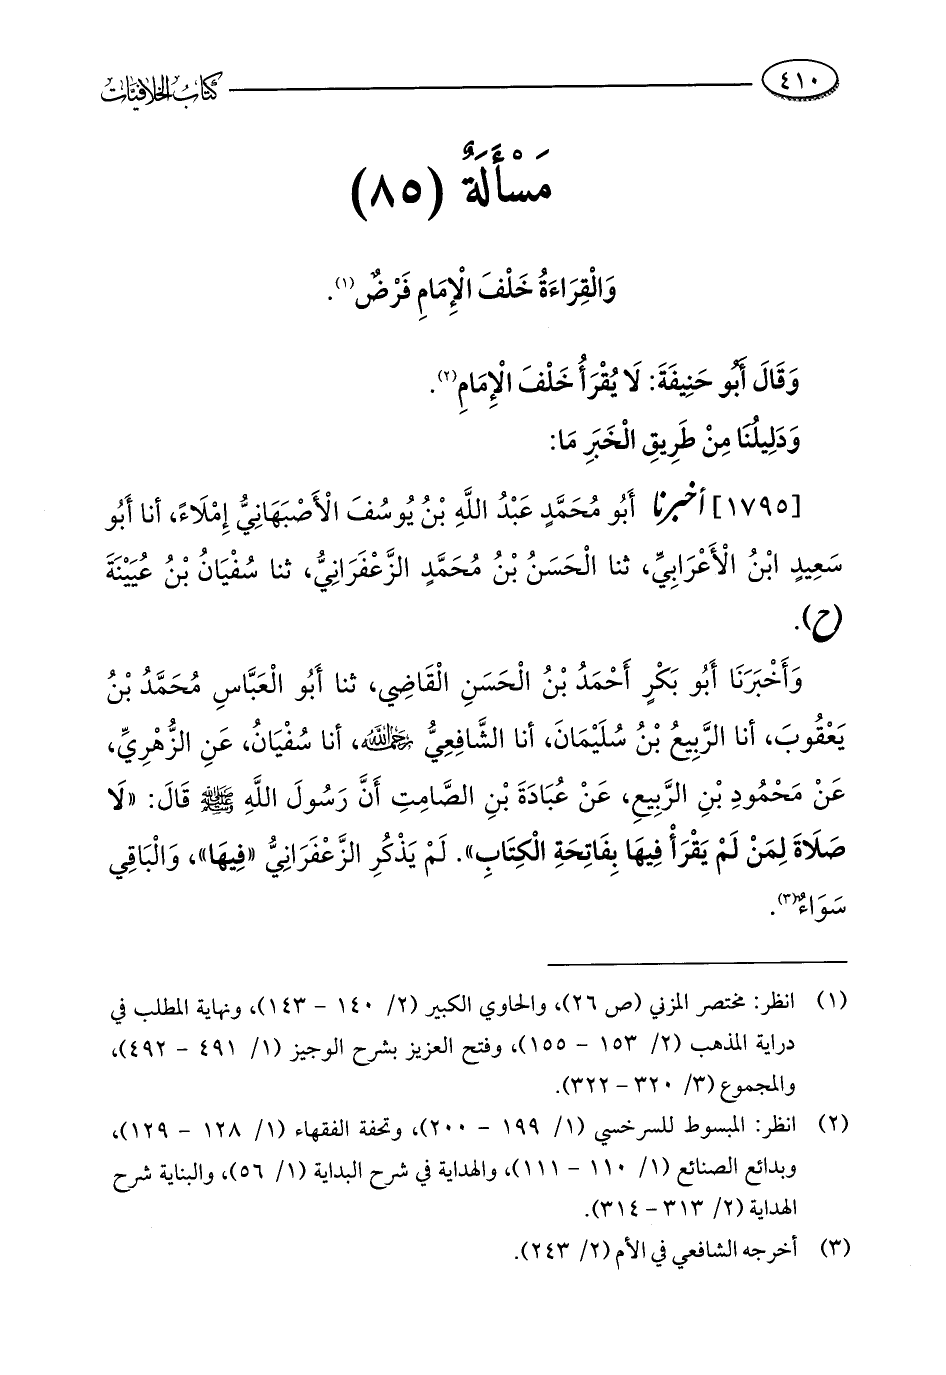 ٤١٠
كتاب الخلافيات
مَسْأَلَةٌ (٨٥)
وَالْقِرَاءَةُ خَلْفَ الْإِمَامِ فَرْضٌ(١).
وَقَالَ أَبُو حَنِيفَةَ: لَا يُقْرَأُ خَلْفَ الْإِمَامِ(٢).
وَدَلِيلُنَا مِنْ طَرِيقِ الْخَبَرِ مَا:
[١٧٩٥] أخبرنا أَبُو مُحَمَّدٍ عَبْدُ اللَّهِ بْنُ يُوسُفَ الْأَصْبَهَانِيُّ إِمْلَاءً، أنا أَبُو
سَعِيدٍ ابْنُ الْأَعْرَابِيِّ، ثنا الْحَسَنُ بْنُ مُحَمَّدٍ الزَّعْفَرَانِيُّ، ثنا سُفْيَانُ بْنُ عُيَيْنَةَ
(ح).
وَأَخْبَرَنَا أَبُو بَكْرٍ أَحْمَدُ بْنُ الْحَسَنِ الْقَاضِي، ثنا أَبُو الْعَبَّاسِ مُحَمَّدُ بْنُ
يَعْقُوبَ، أنا الرَّبِيعُ بْنُ سُلَيْمَانَ، أنا الشَّافِعِيُّ رحمه الله، أنا سُفْيَانُ، عَنِ الزُّهْرِيِّ،
عَنْ مَحْمُودِ بْنِ الرَّبِيعِ، عَنْ عُبَادَةَ بْنِ الصَّامِتِ أَنَّ رَسُولَ اللَّهِ ﷺ قَالَ: «لَا
صَلَاةَ لِمَنْ لَمْ يَقْرَأْ فِيهَا بِفَاتِحَةِ الْكِتَابِ». لَمْ يَذْكُرِ الزَّعْفَرَانِيُّ «فِيهَا»، وَالْبَاقِي
سَوَاءٌ(٣).
(١) انظر: مختصر المزني (ص ٢٦)، والحاوي الكبير (٢/ ١٤٠ - ١٤٣)، ونهاية المطلب في
دراية المذهب (٢/ ١٥٣ - ١٥٥)، وفتح العزيز بشرح الوجيز (١/ ٤٩١ - ٤٩٢)،
والمجموع (٣/ ٣٢٠ - ٣٢٢).
(٢) انظر: المبسوط للسرخسي (١/ ١٩٩ - ٢٠٠)، وتحفة الفقهاء (١/ ١٢٨ - ١٢٩)،
وبدائع الصنائع (١/ ١١٠ - ١١١)، والهداية في شرح البداية (١/ ٥٦)، والبناية شرح
الهداية (٢/ ٣١٣ - ٣١٤).
(٣) أخرجه الشافعي في الأم (٢/ ٢٤٣).